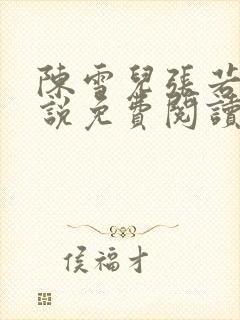 陳雪兒張若
說免費閱讀
侯福才